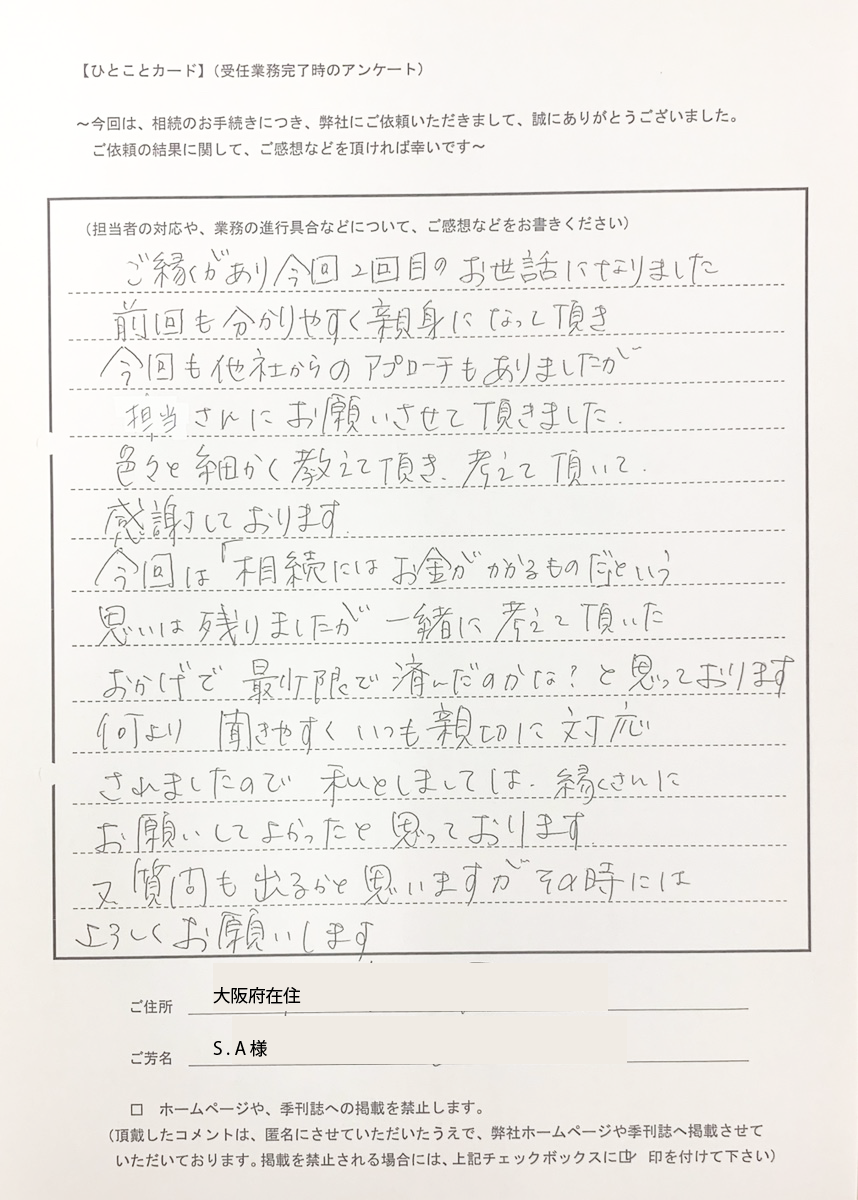 【ひとことカード】（受任業務完了時のアンケート）
～今回は、相続のお手続きにつき、弊社にご依頼いただきまして、誠にありがとうございました。
ご依頼の結果に関して、ご感想などを頂ければ幸いです～
（担当者の対応や、業務の進行具合などについて、ご感想などをお書きください）
ご縁があり今回2回目のお世話になりました
前回も分かりやすく親身になって頂き
今回も他社からのアプローチもありましたが
担当さんにお願いさせて頂きました.
色々と細かく教えて頂き、考えて頂いて、
感謝しております.
今回は「相続にはお金がかかるものだ」という
思いは残りましたが 一緒に考えて頂いた
おかげで 最小限で済んだのかな？と思っております
何より 聞きやすく いつも親切に対応
されましたので 私としましては、縁くさんに
お願いしてよかったと思っております.
又、質問も出るかと思いますがその時には
よろしくお願いします.
ご住所 大阪府在住
ご芳名 S.A様
□ ホームページや、季刊誌への掲載を禁止します。
（頂戴したコメントは、匿名にさせていただいたうえで、弊社ホームページや季刊誌へ掲載させて
いただいております。掲載を禁止される場合には、上記チェックボックスに☑ 印を付けて下さい）